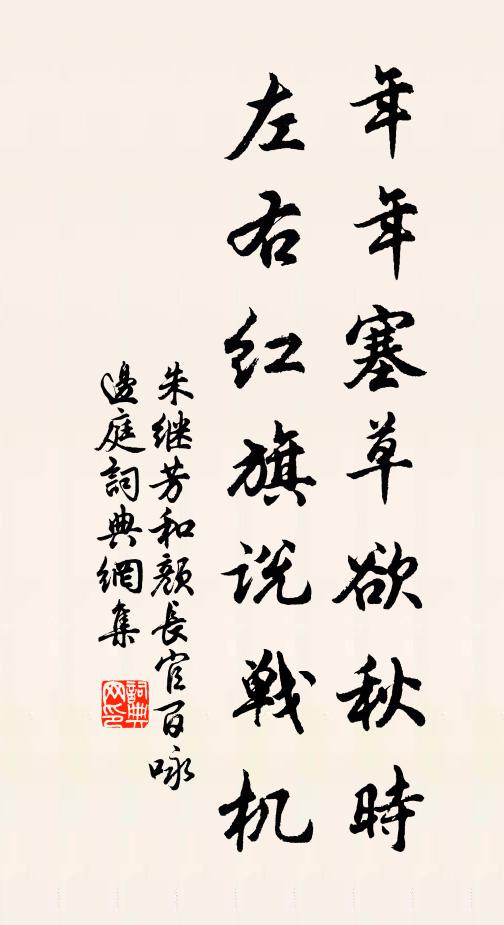 年年塞草欲秋時
左右红旗说戦机
朱继芳和顏長官百咏
邊庭詞典網集
詞典网印